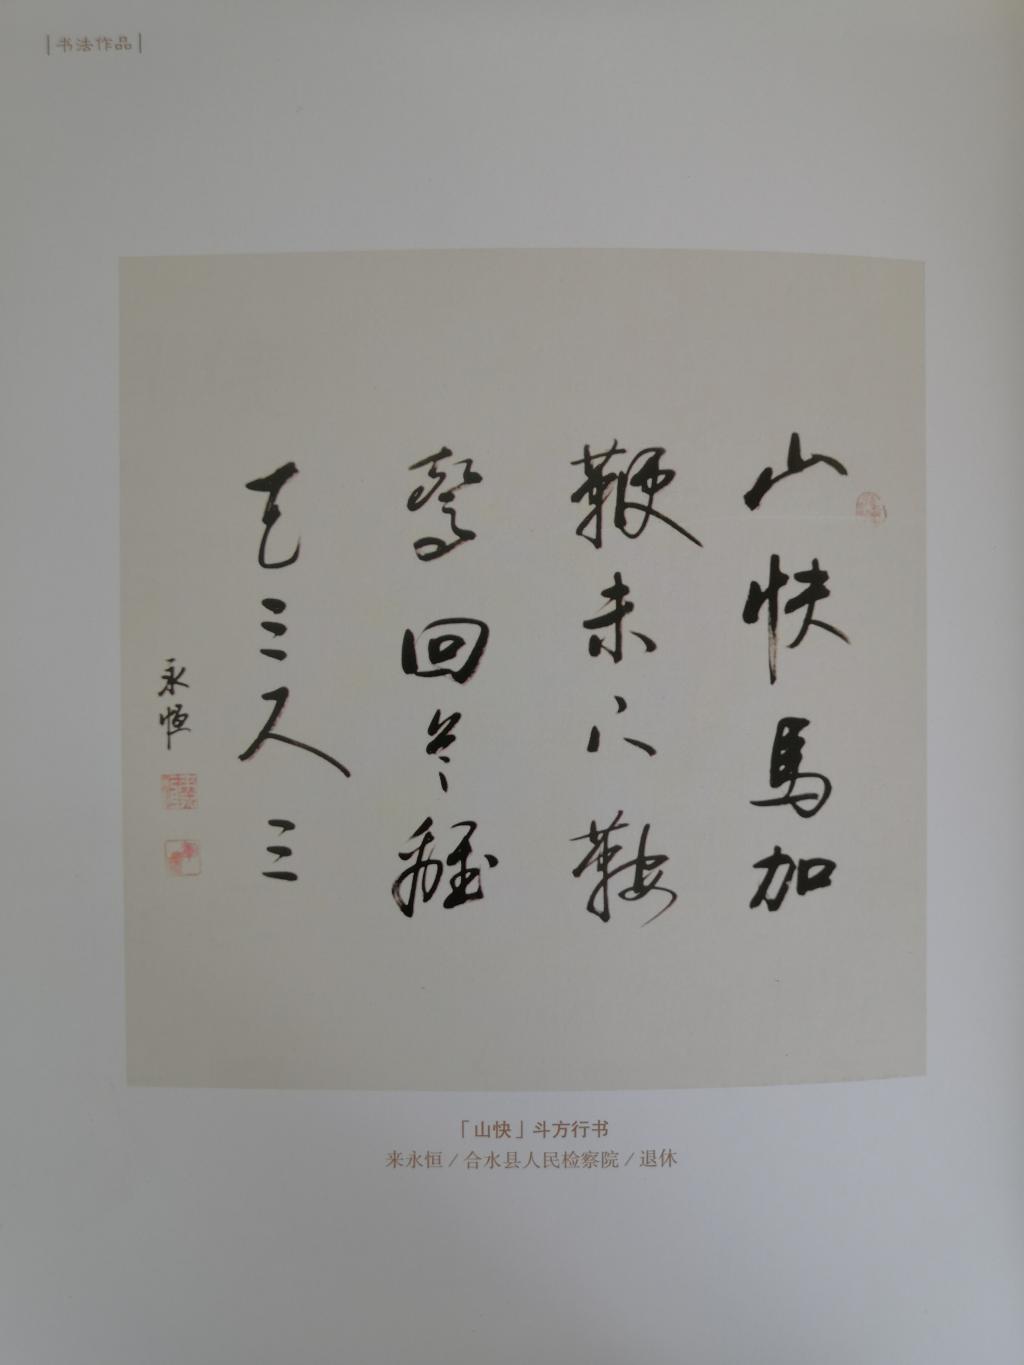 书法作品
山快馬加
鞭未下鞍
驚回首離
天三尺三
永恒
「山快」斗方行书
来永恒/合水县人民检察院/退休